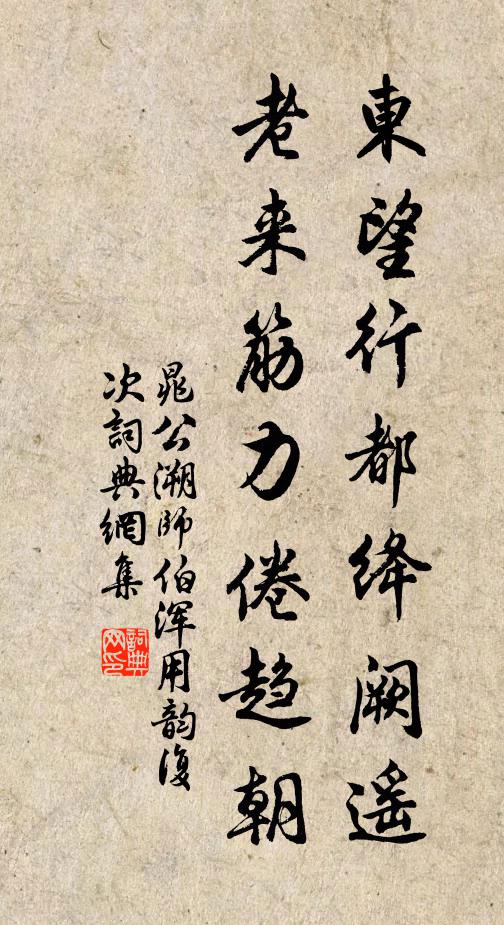 東望行都绛阙遥
老来筋力倦趋朝
晁公溯師伯渾用韵復
次詞典網集
詞典网印